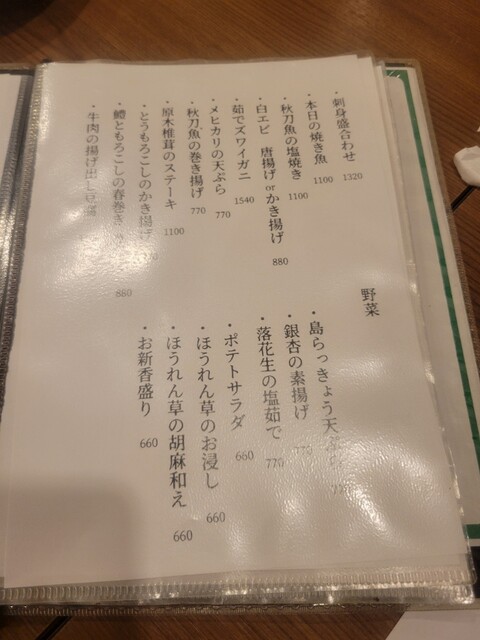 ・刺身盛合わせ 1320
・本日の焼き魚 1100
・秋刀魚の塩焼き 1100
・白エビ 唐揚げorかき揚げ 880
・茹でズワイガニ 1540
・メヒカリの天ぷら 770
・秋刀魚の巻き揚げ 770
・原木椎茸のステーキ 1100
・とうもろこしのかき揚げ
・鱧ともろこしの春巻き 860
・牛肉の揚げ出し豆腐
野菜
・島らっきょう天ぷら
・銀杏の素揚げ 770
・落花生の塩茹で 770
・ポテトサラダ 660
・ほうれん草のお浸し 660
・ほうれん草の胡麻和え 660
・お新香盛り 660